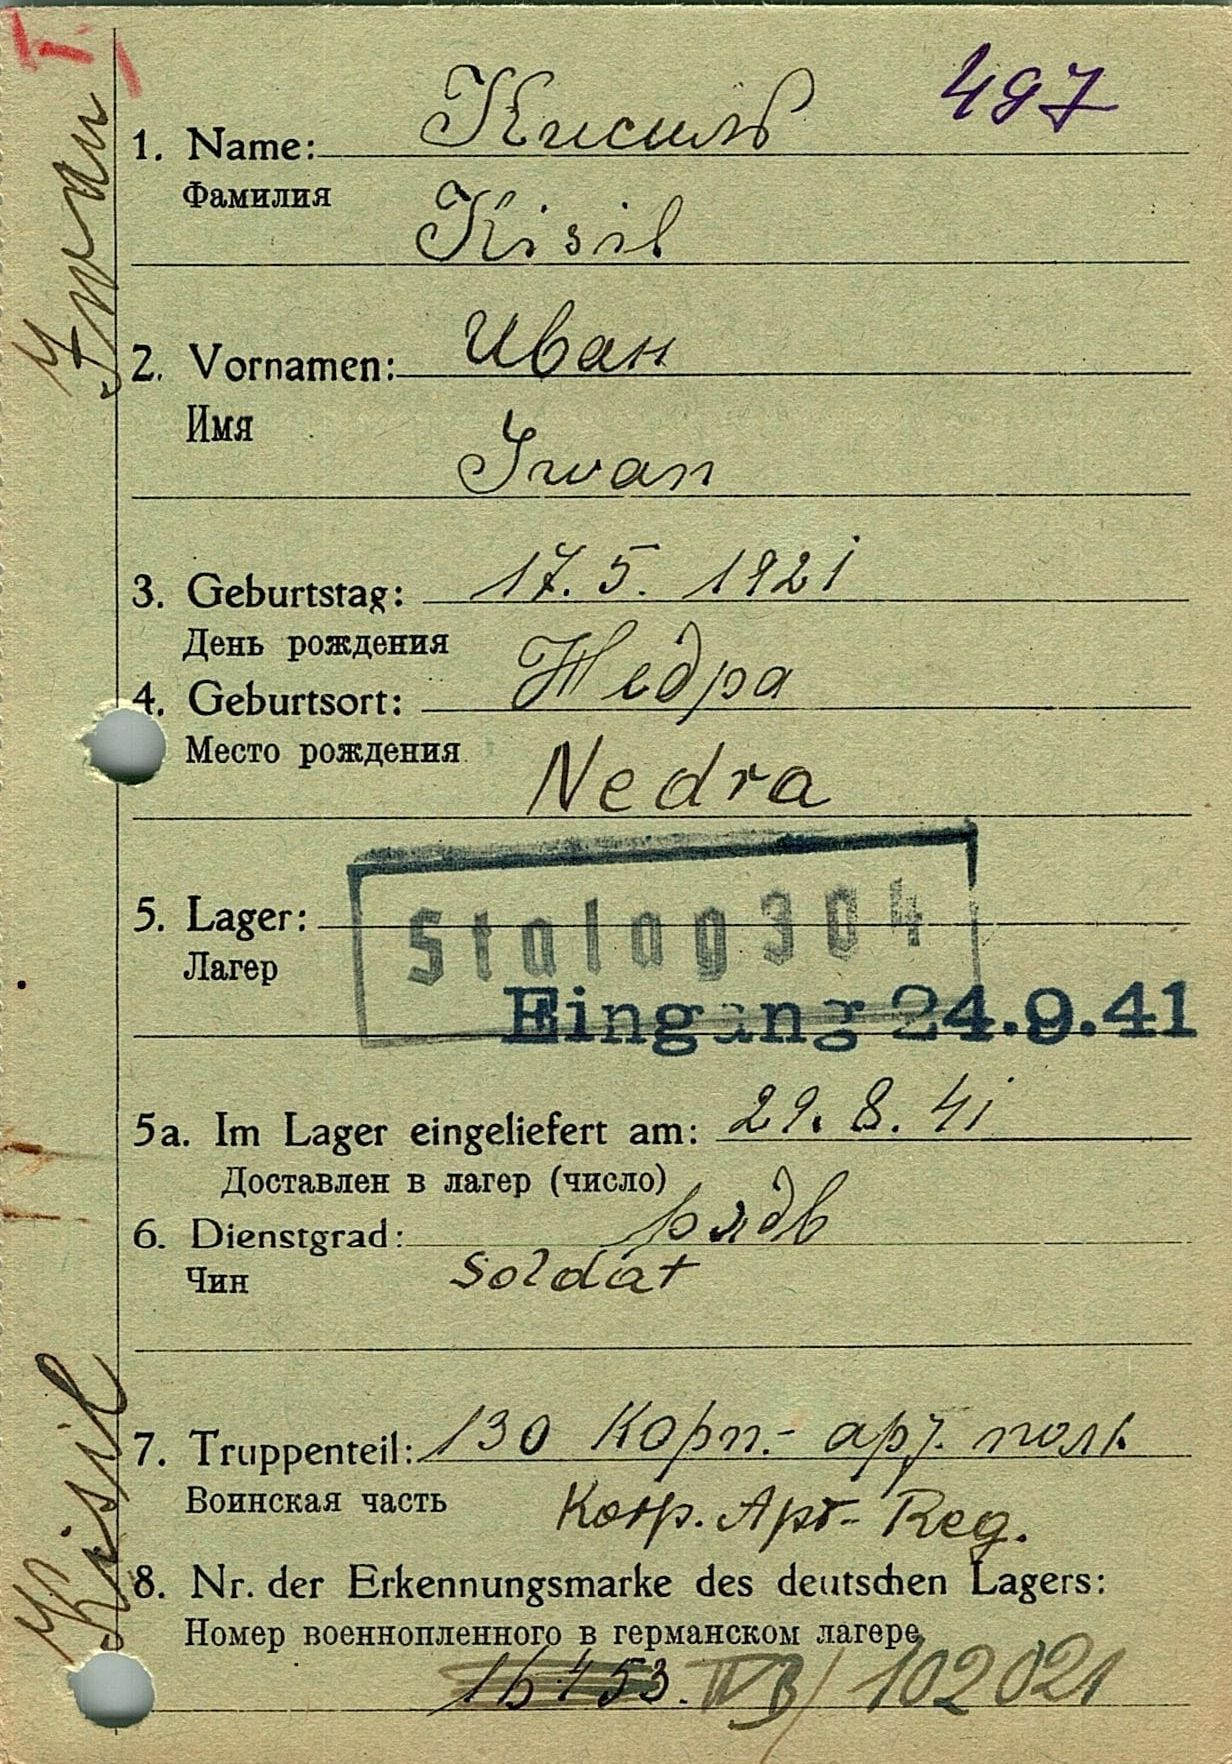 497
1. Name: Кисиль
Фамилия
Kisil
2. Vornamen: Иван
Имя
Iwan
3. Geburtstag: 17. 5. 1921
День рождения
4. Geburtsort: Недра
Место рождения
Nedra
5. Lager: Stalag 304
Лагер
Eingang 24.9.41
5a. Im Lager eingeliefert am: 29. 8. 41
Доставлен в лагер (число)
6. Dienstgrad: рядв
Чин
Soldat
7. Truppenteil: 130 Корп.- арт. полк
Воинская часть
Korp. Art- Reg.
8. Nr. der Erkennungsmarke des deutschen Lagers:
Номер военнопленного в германском лагере
IVB/ 102021
Kisil
Iwan